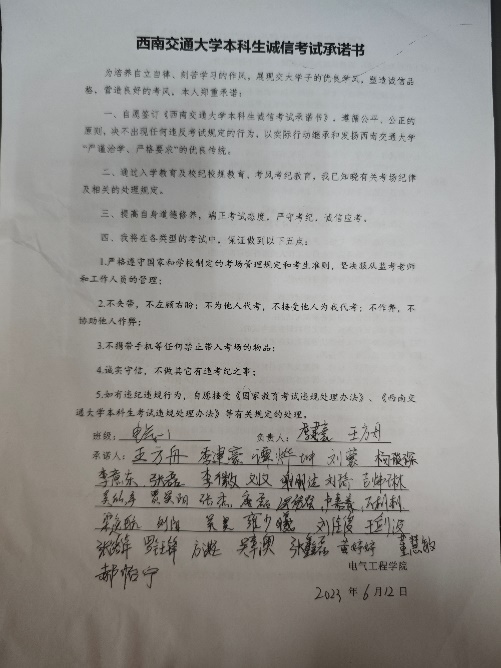 西南交通大学本科生诚信考试承诺书
为培养自立自律、刻苦学习的作风，展现交大学子的优良学风，塑造诚信品
格，营造良好的考风，本人郑重承诺：
一、自愿签订《西南交通大学本科生诚信考试承诺书》，遵循公平、公正的
原则，决不出现任何违反考试规定的行为，以实际行动继承和发扬西南交通大学
“严谨治学、严格要求”的优良传统。
二、通过入学教育及校纪校规教育、考风考纪教育，我已知晓有关考场纪律
及相关的处理规定。
三、提高自身道德修养，端正考试态度，严守考纪，诚信应考。
四、我将在各类型的考试中，保证做到以下五点：
1.严格遵守国家和学校制定的考场管理规定和考生准则，坚决服从监考老师
和工作人员的管理；
2.不夹带，不左顾右盼；不为他人代考，不接受他人为我代考；不作弊，不
协助他人作弊；
3.不携带手机等任何禁止带入考场的物品；
4.诚实守信，不做其它有违考纪之事；
5.如有违纪违规行为，自愿接受《国家教育考试违规处理办法》、《西南交
通大学本科生考试违规处理办法》等有关规定的处理。
班级： 负责人： 王方舟
承诺人：王方舟 李津豪 刘蒙
张磊 刘文
张杰
刘阳 刘佳俊
方淞 张鑫磊 黄婷婷 董慧敏
电气工程学院
2023 年 6 月 12 日